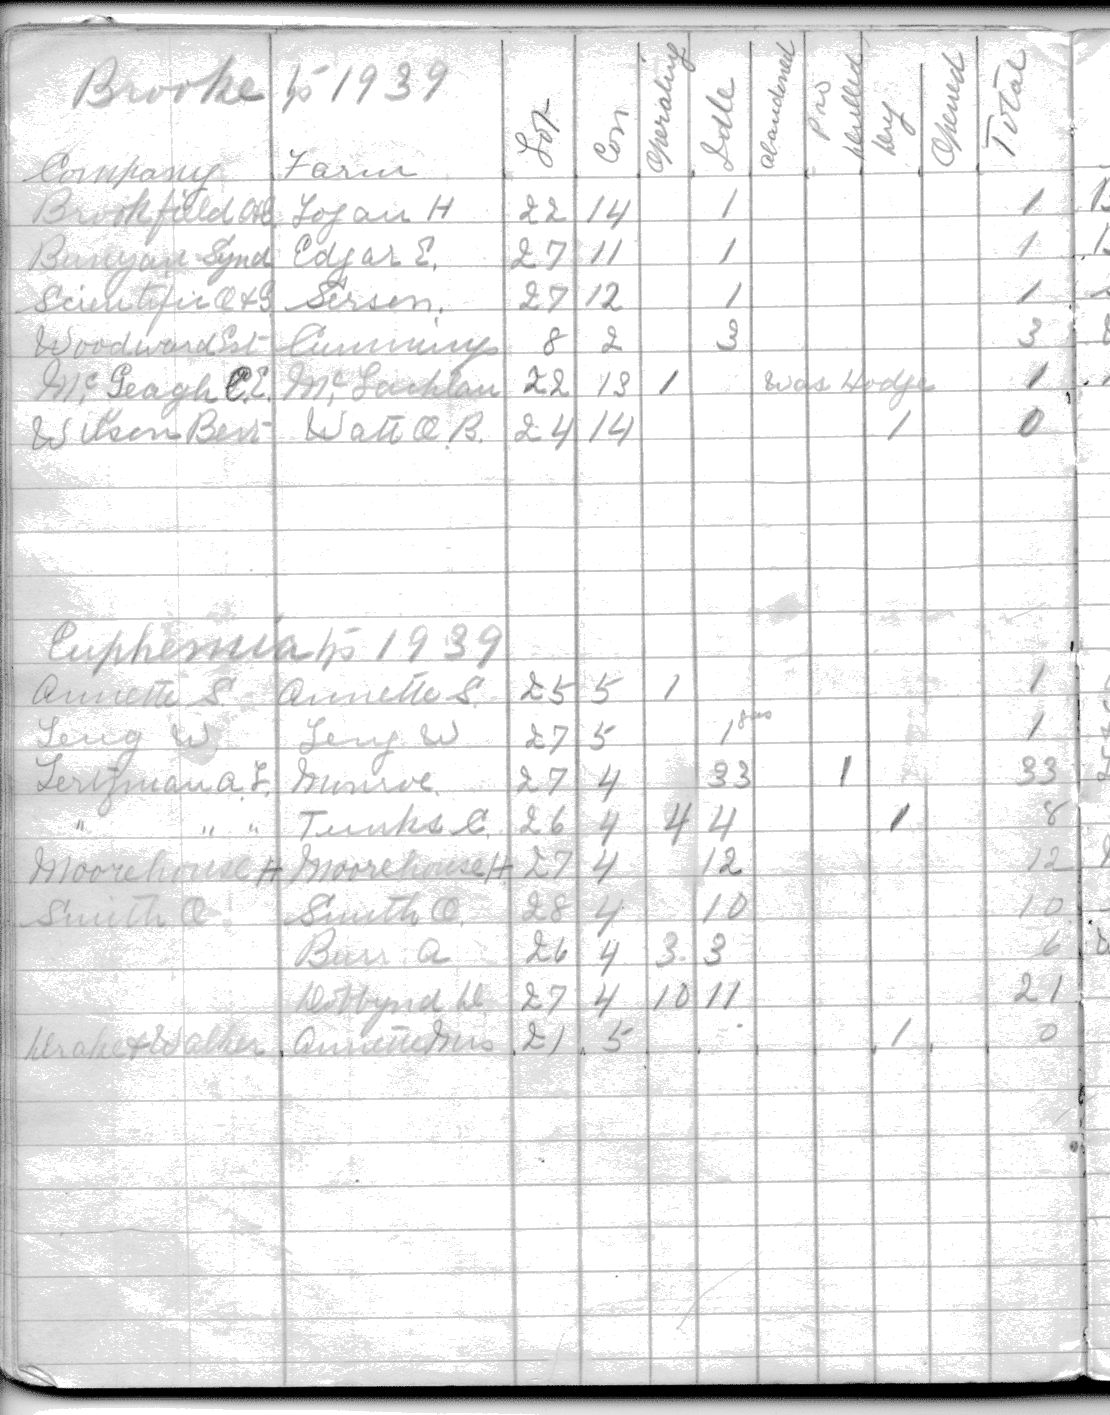 Brooke tp 1939
Company Farm Lot Con Operating Idle Abandoned Pro Drilled Dry Opened Total
Brookfield O&G Logan H 22 14 1 1
Bunyan Synd Edgar E. 27 11 1 1
Scientific O & G Sierson. 27 12 1 1
Woodward Est Cummings 8 2 3 3
Mc Geagh C.E. Mc Lachlan 22 13 1 Was Hodge 1
Wilson Bert Watt O.B. 24 14 1 0
Euphemia tp 1939
Annette S. Annette S. 25 5 1 1
Leng W Leng W 27 5 1 gas 1
Lertzman A.L. Munroe. 27 4 33 1 33
" " " Tunks C. 26 4 4 4 1 8
Moorehouse H Moorehouse H 27 4 12 12
Smith O Smith O. 28 4 10 10
Burr A 26 4 3 3 6
Dobbynd D. 27 4 10 11 21
Drake & Walker Annette Mrs 21 5 1 0